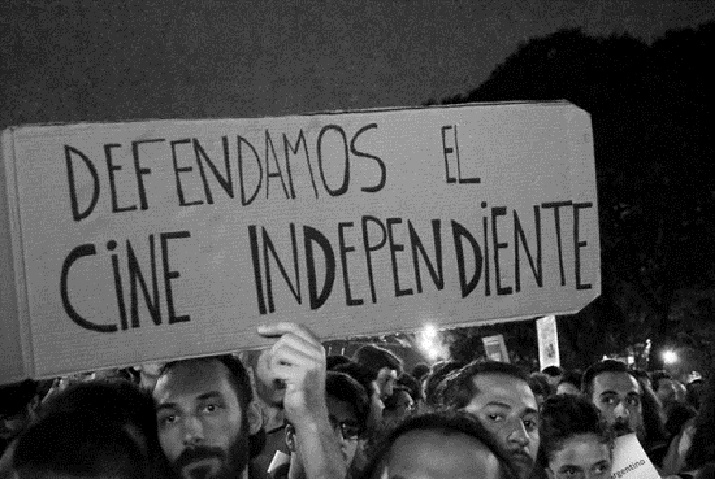 DEFENDAMOS EL
CiNE INDEPENDiENTE
argentino